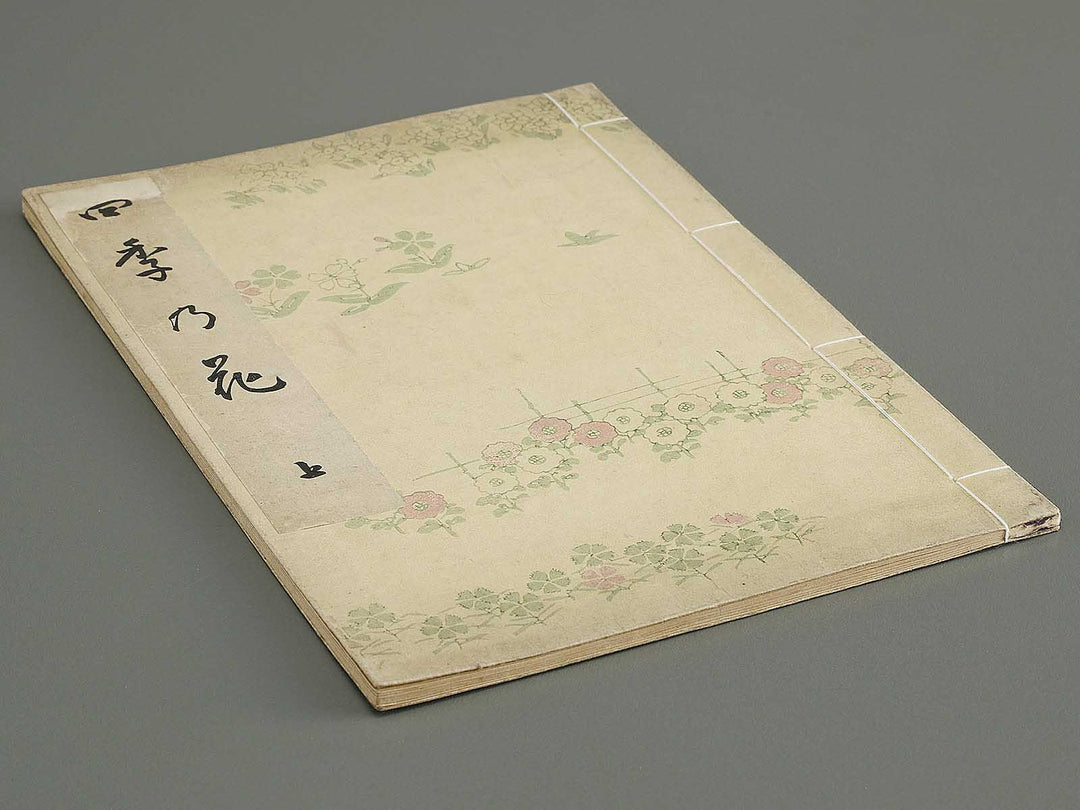 四季乃花 上